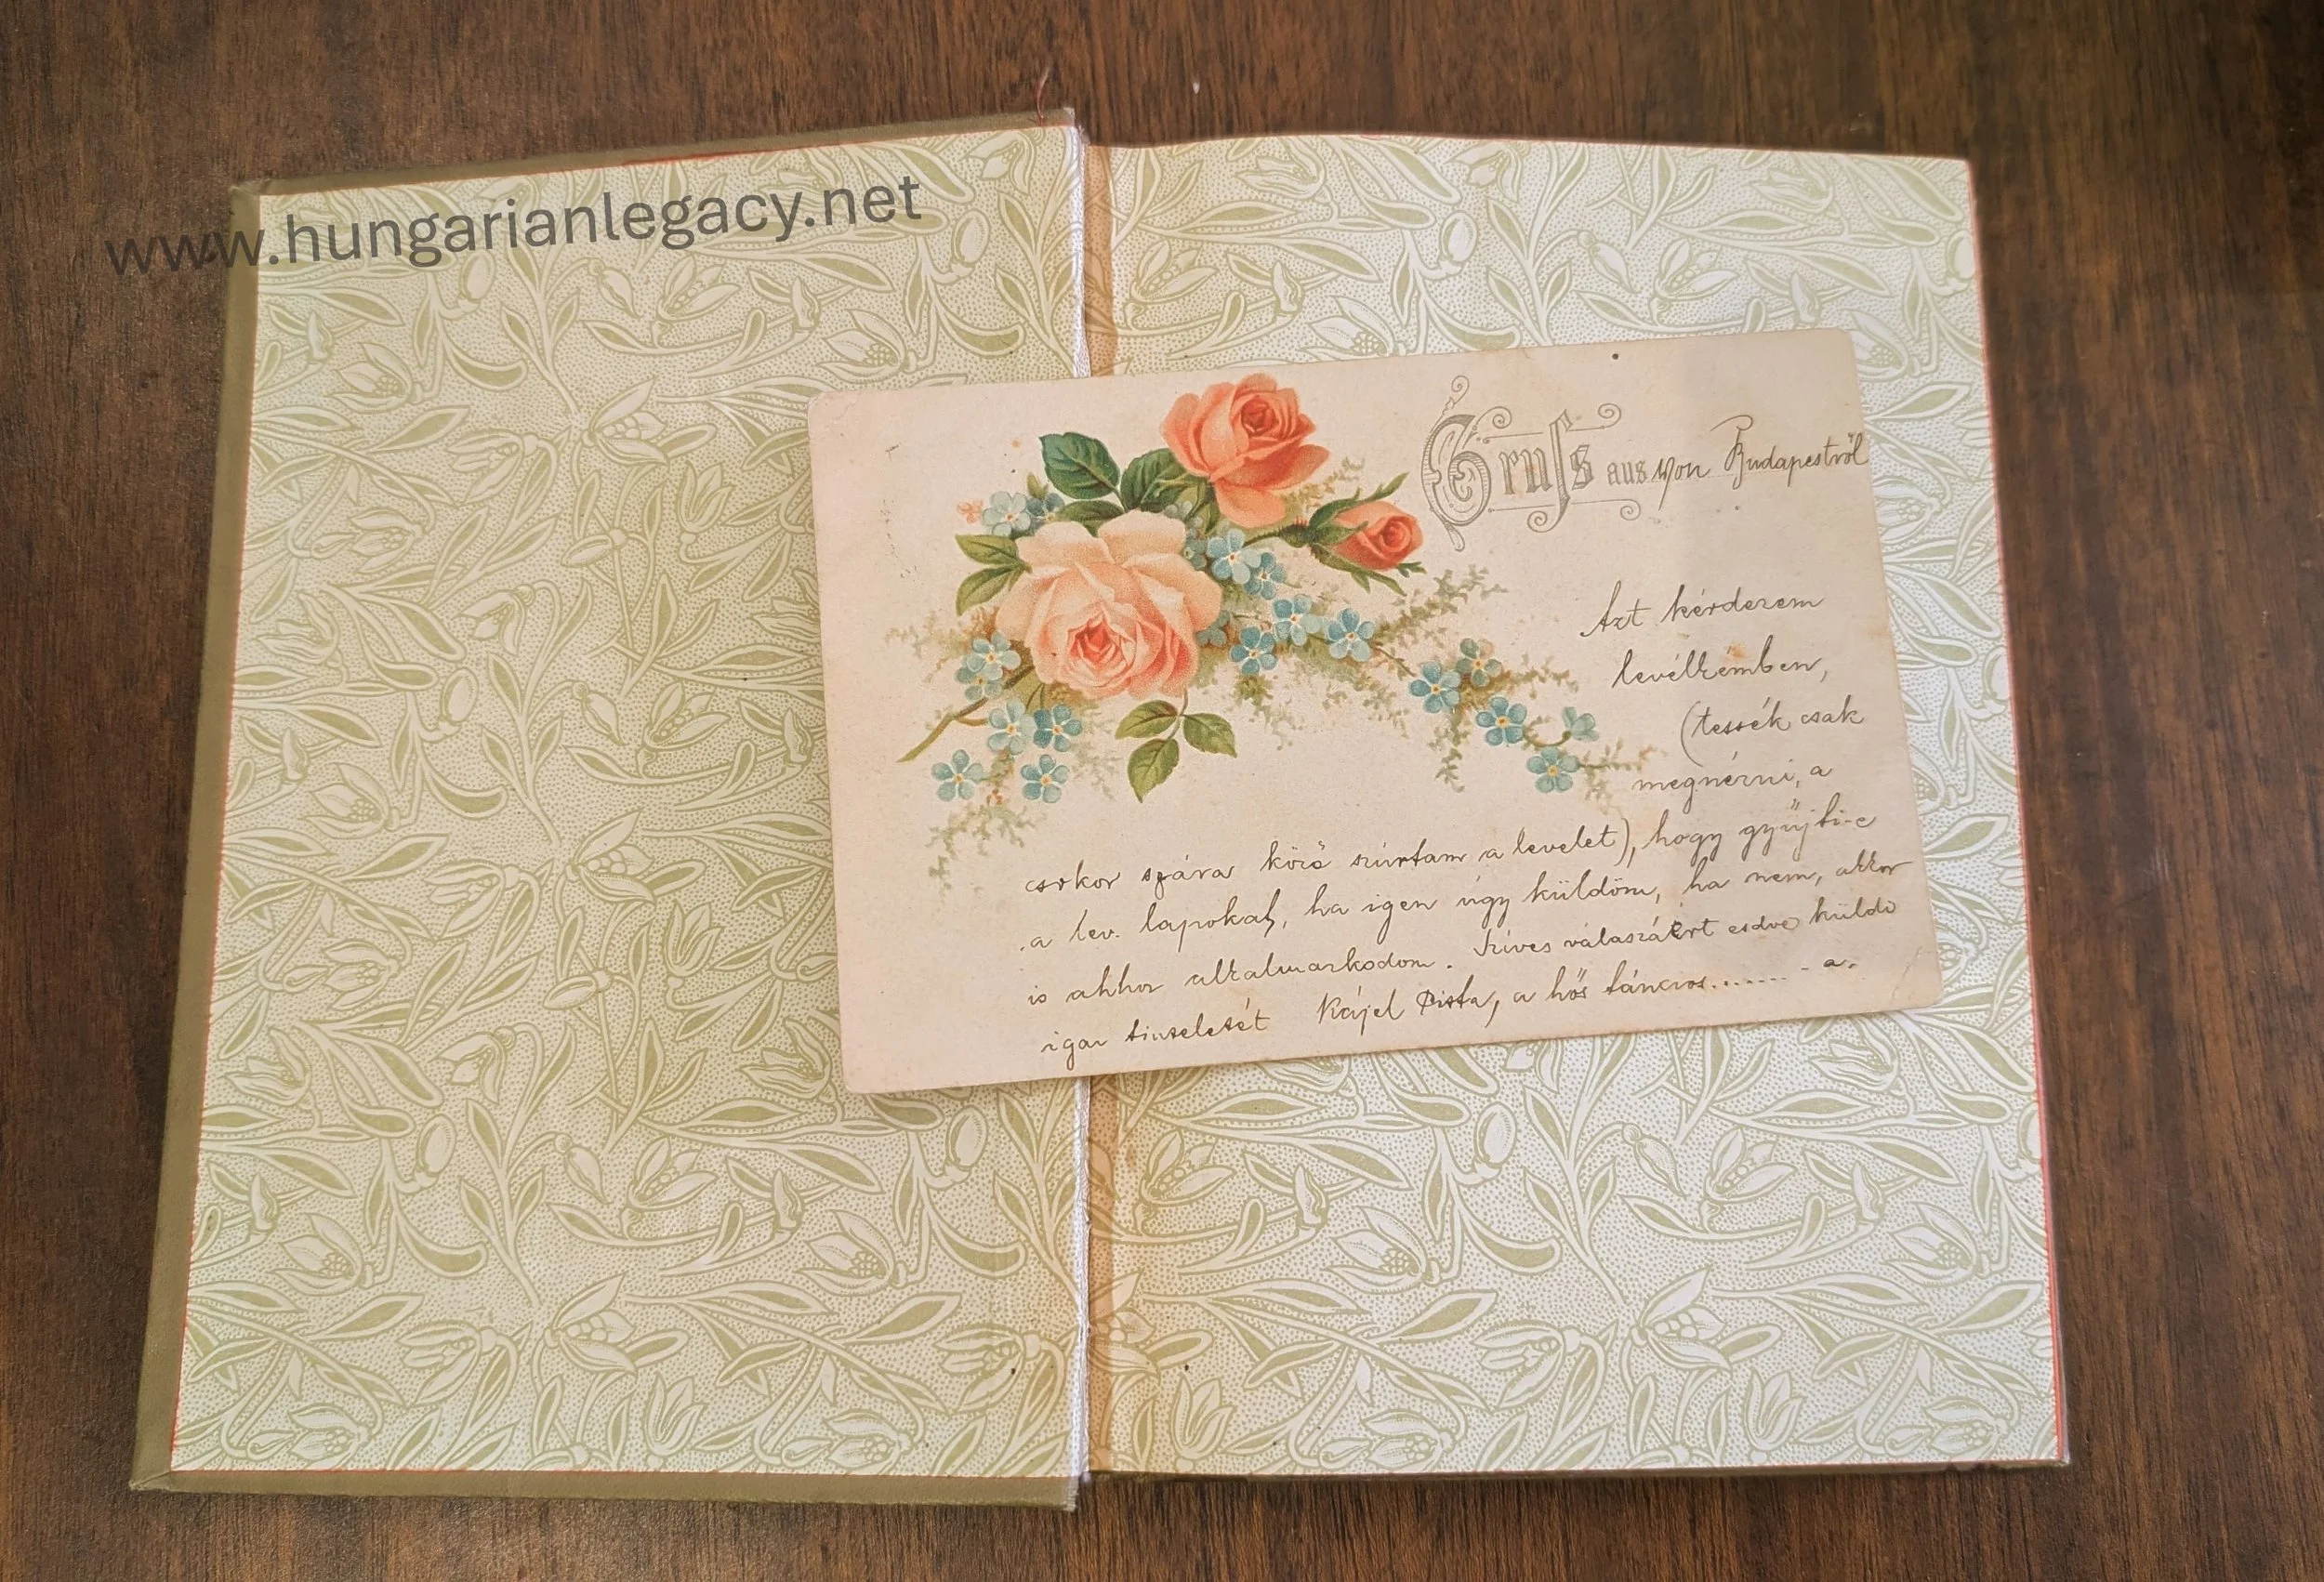 www.hungarianlegacy.net
Gruss aus von Budapestről
Azt kérdezem
levélkémben,
(tessék csak
megnézni, a
csokor szára közé szúrtam a levelet), hogy gyűjti-e
a lev. lapokat, ha igen úgy küldöm, ha nem, akkor
is ahhoz alkalmazkodom. Szíves válaszáért esdve küldi
igaz tiszteletét Kájel Pista, a hős táncos....... a.